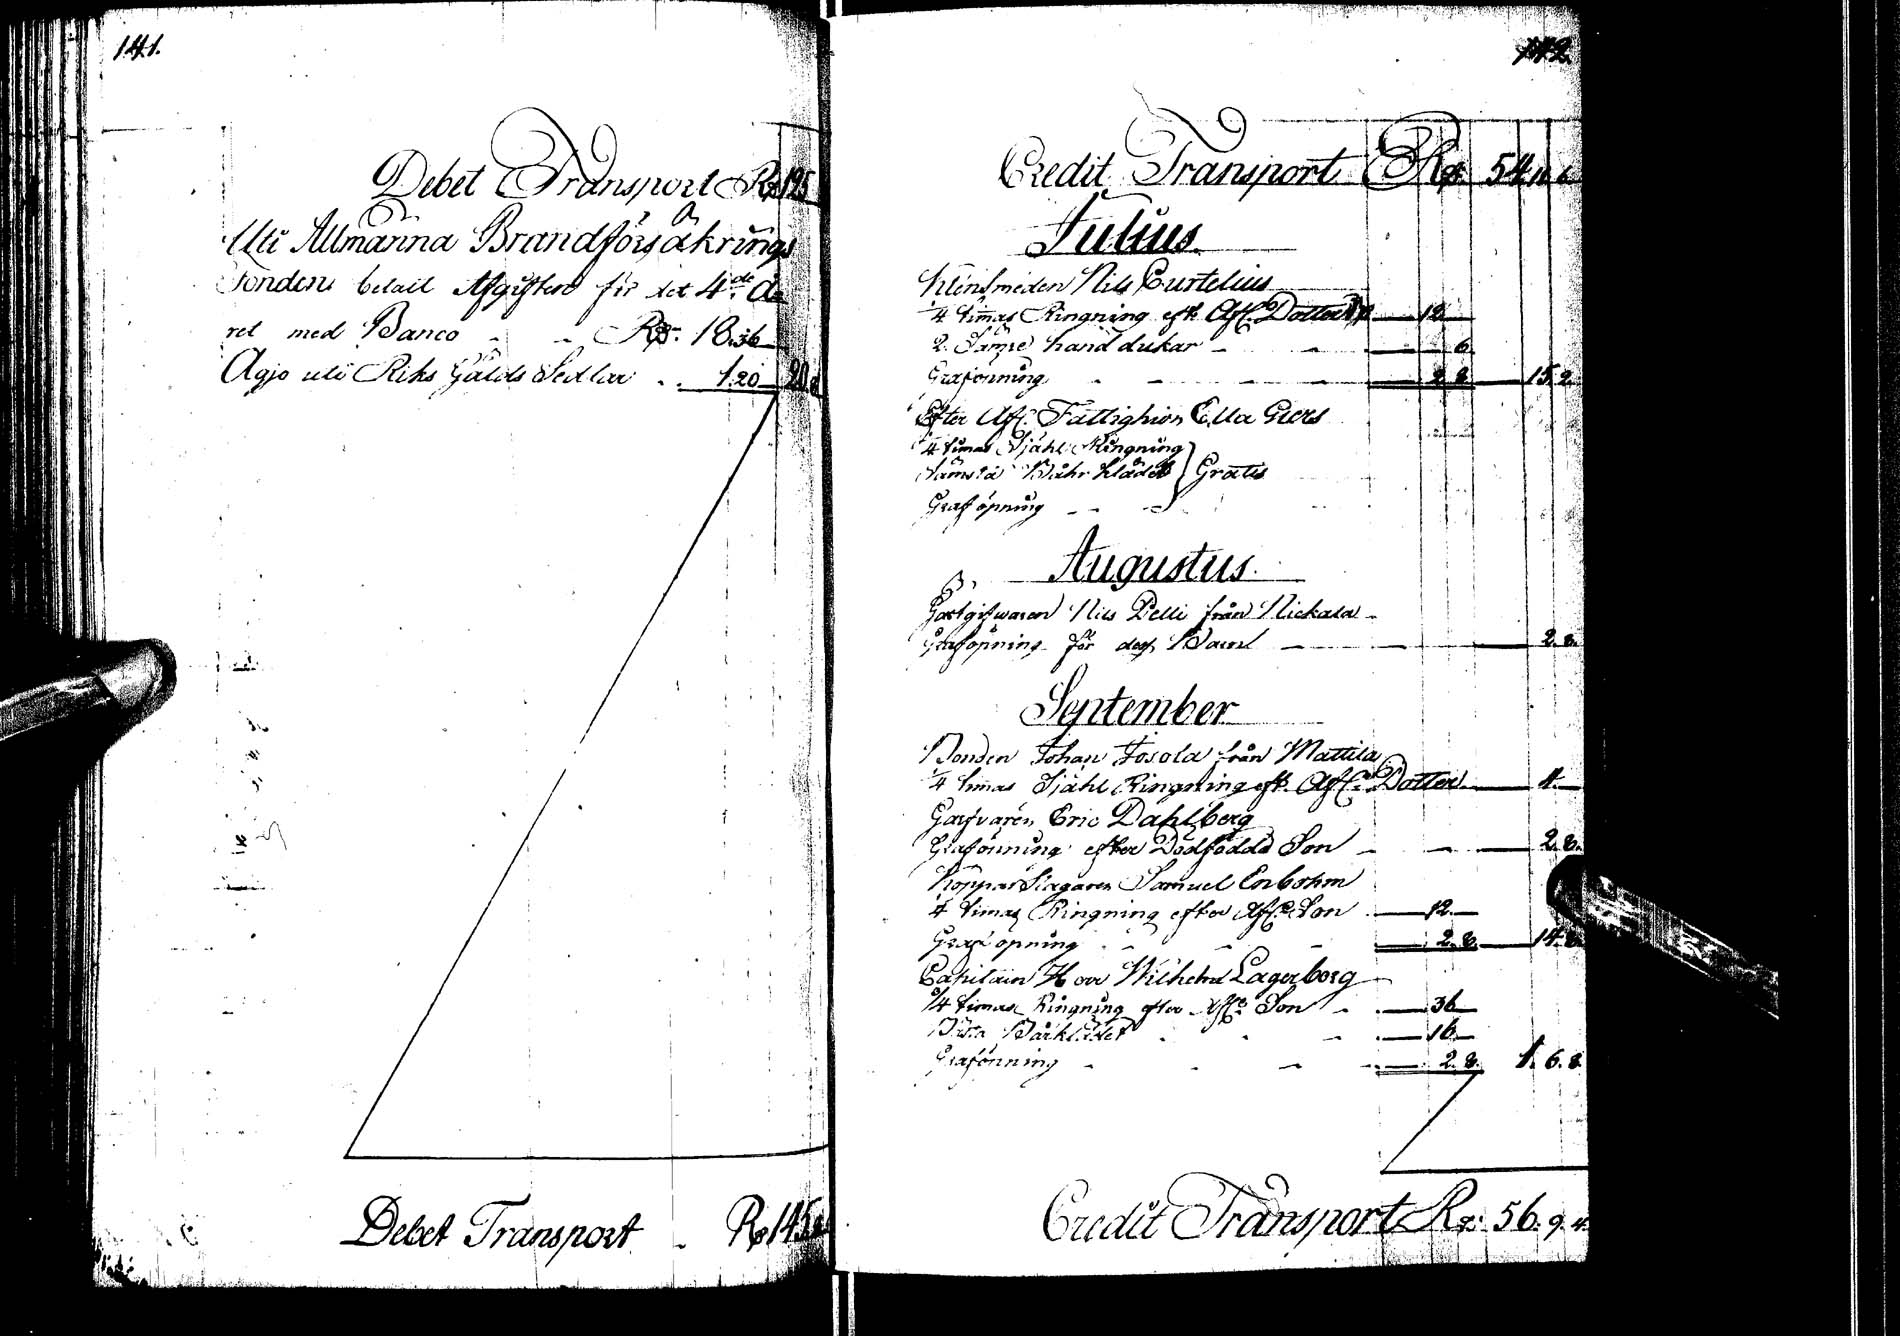 141.
Debet Transport Rd 125
Uti Allmänna Brandförsäkrings
Fonden betalt Afgiften för det 4de Åa
ret med Banco - - Rd. 18.36
Agio uti Riks Gälds Sedlar .. 1.20 20.8
Debet Transport - Rd 145.
142.
Credit Transport Rd. 54 11 6
Julius.
Kleinsmeden Nils Curtelius
1/4 timas Ringning eft. Afl. Dotter 12
2. Sämre handdukar - - 6
Graföpning - - - - 2.8 15.2
Efter Afl. Fattighion Ella Giers
1/4 timas Sjähl Ringning
Sämsta Båhrklädet } Gratis
Graföpning - - -
Augustus.
Gästgifwaren Nils Pelli från Nickala
Graföpning för dess Barn 2.8.
September
Bonden Johan Josola från Mattila
1/4 timas Sjähl Ringning eft. Afl. Dotter 4
Garfvaren Eric Dahlberg
Graföpning efter Dödfödde Son - - 2.8.
Kopparslagaren Samuel Enbohm
1/4 timas Ringning efter Afl. Son 12
Graf öpning - - - 2.8. 14.8
Capitain Herr Wilhelm Lagerborg
1/4 timas Ringning efter Afl. Son - 36
Bästa Bårklädet . . - 16
Graföpning - - - - 2.8. 1.6.8.
Credit Transport Rd. 56.9.4.